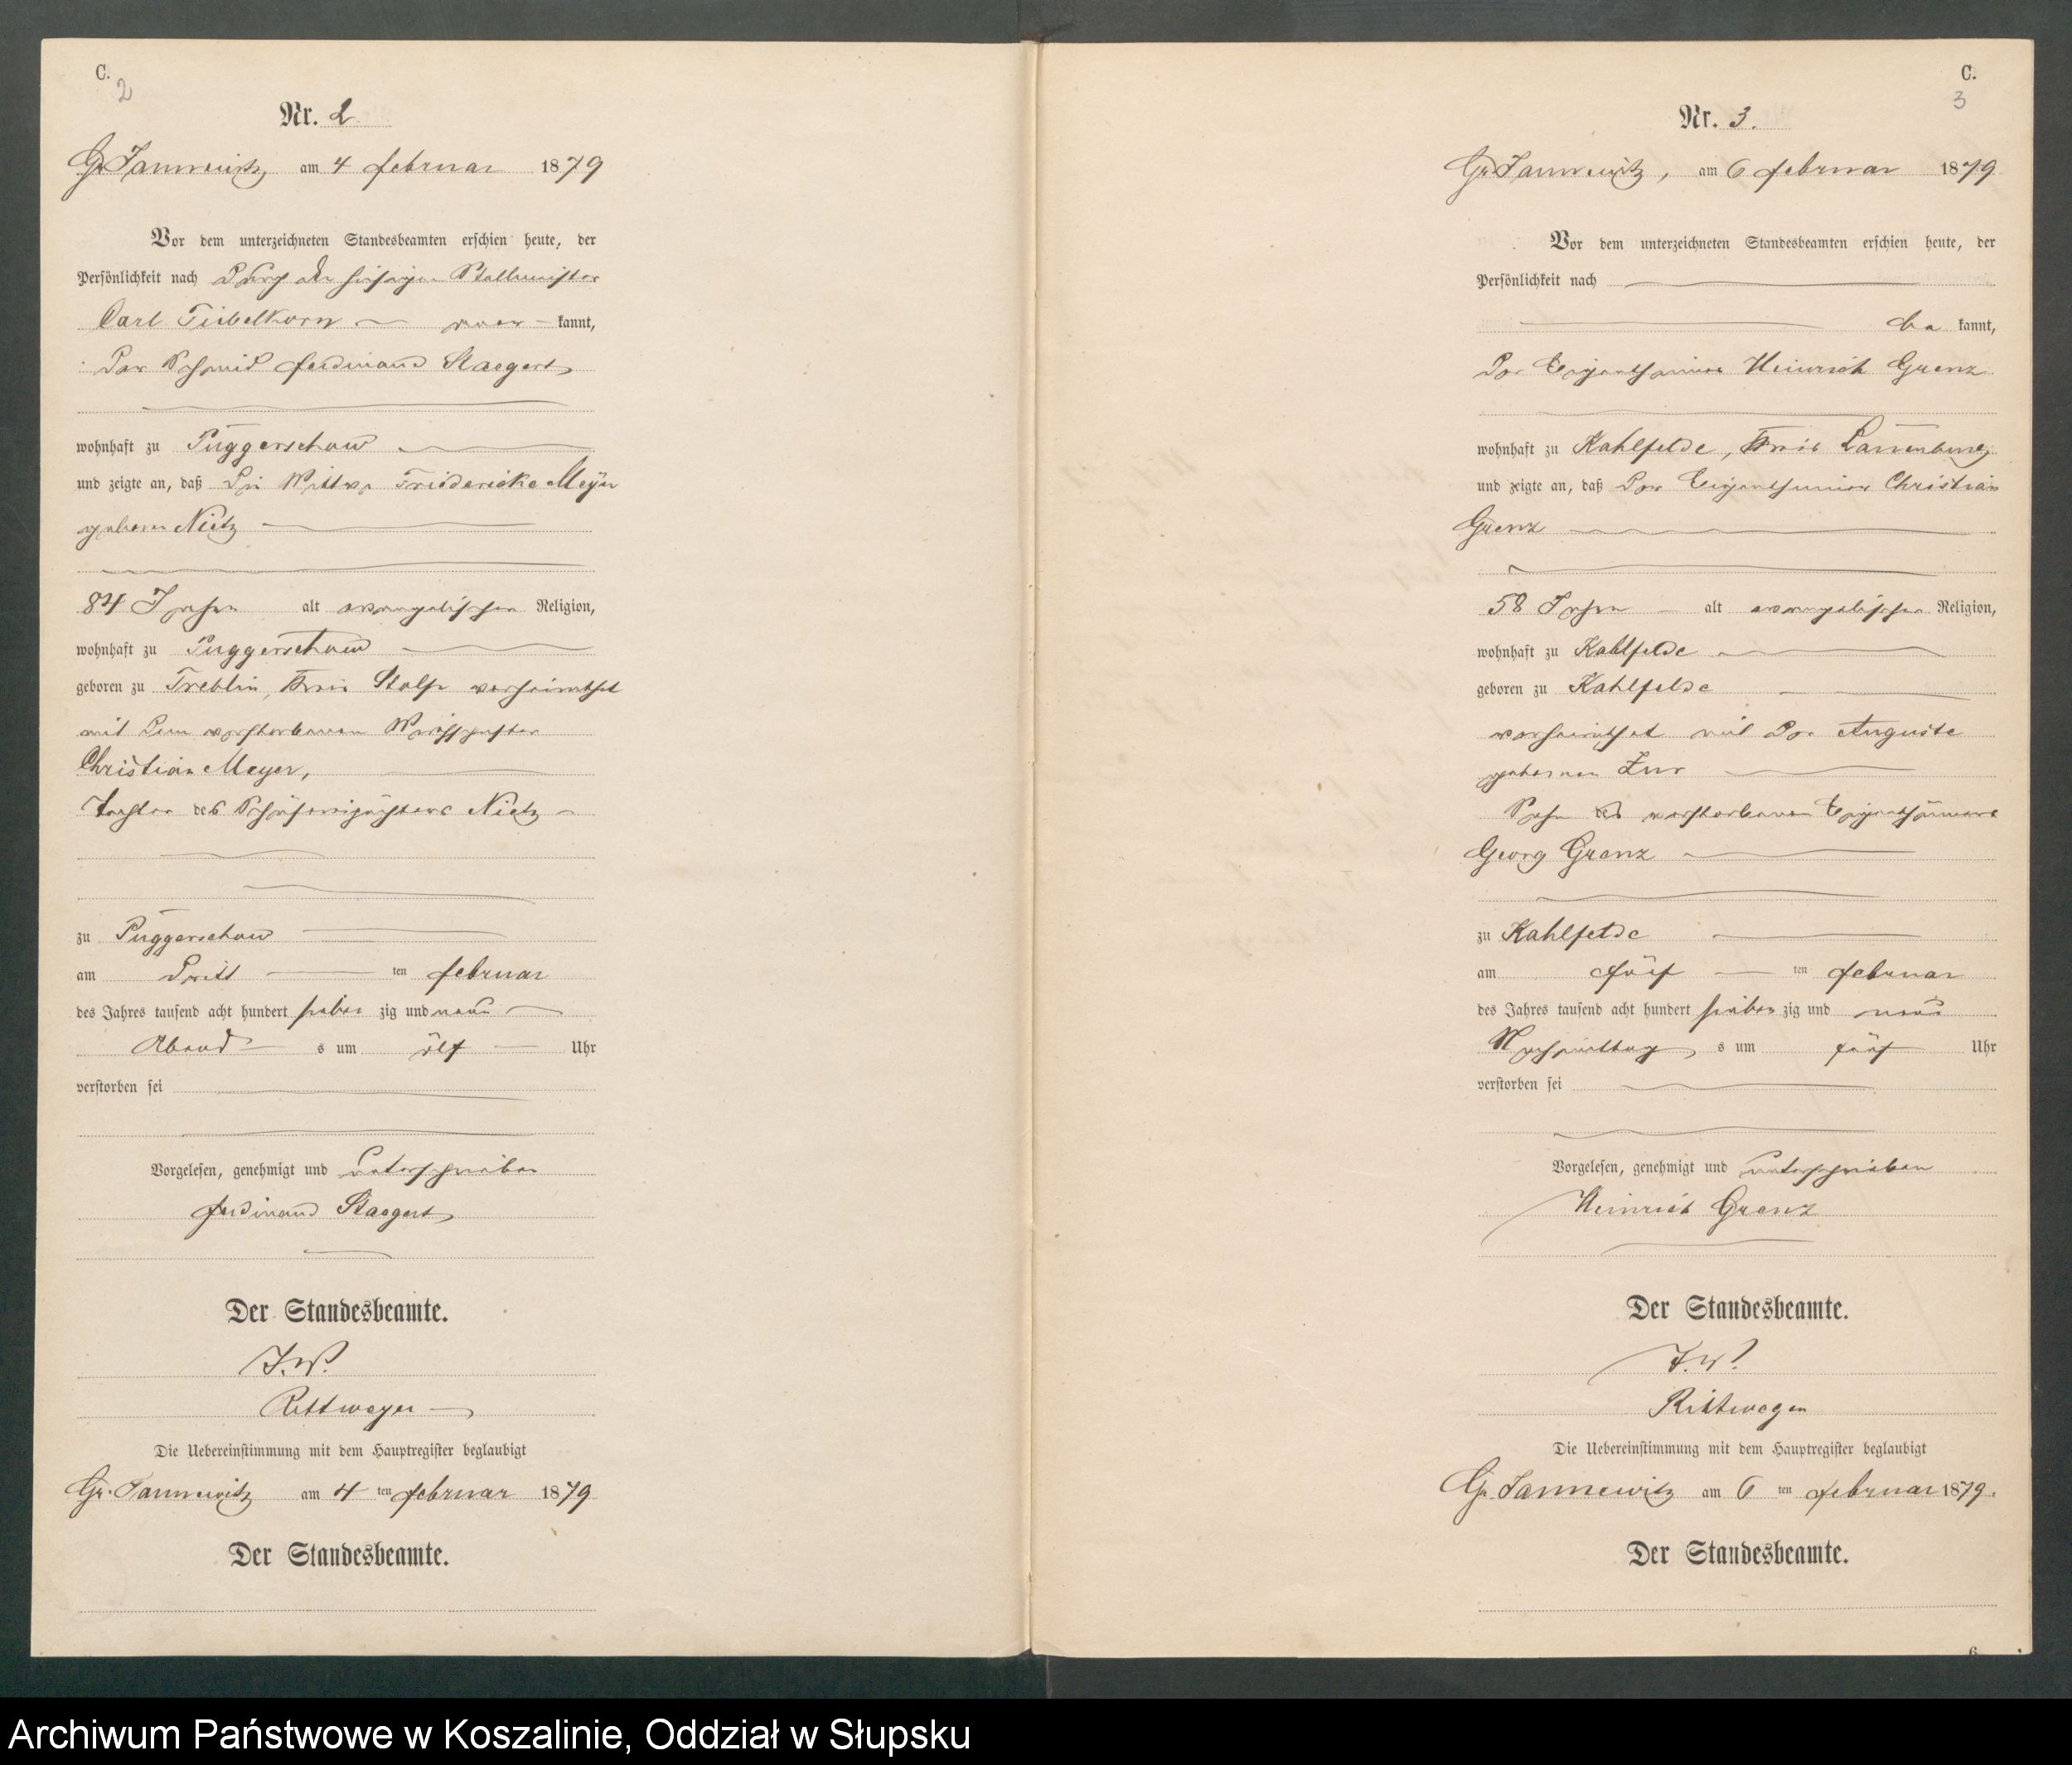 C.
2
Nr. 2
Gr. Jannewitz, am 4 Februar 1879
Vor dem unterzeichneten Standesbeamten erschien heute, der
Persönlichkeit nach durch den hiesigen Stellmacher
Carl Fiebelkorn kannt,
der Schmid Ferdinand Staegert
wohnhaft zu Puggerschow
und zeigte an, daß die Wittwe Friedericke Meyer
geborene Nietz
84 Jahre alt evangelischer Religion,
wohnhaft zu Puggerschow
geboren zu Treblin, Kreis Stolp verheirathet
mit dem verstorbenen
Christian Meyer,
Tochter des Schäfereipächters Nietz
zu Puggerschow
am dritt ten Februar
des Jahres tausend acht hundert sieben zig und neun
Abend s um elf Uhr
verstorben sei
Vorgelesen, genehmigt und unterschrieben
Ferdinand Staegert
Der Standesbeamte.
J.V.
Rittweger
Die Uebereinstimmung mit dem Hauptregister beglaubigt
Gr. Jannewitz am 4 ten Februar 1879
Der Standesbeamte.
C.
3
Nr. 3.
Gr. Jannewitz, am 6 Februar 1879
Vor dem unterzeichneten Standesbeamten erschien heute, der
Persönlichkeit nach
be kannt,
der Eigenthümer Heinrich Granz
wohnhaft zu Kahlfelde, Kreis Lauenburg
und zeigte an, daß der Eigenthümer Christian
Granz
58 Jahre alt evangelischer Religion,
wohnhaft zu Kahlfelde
geboren zu Kahlfelde
verheirathet mit der Auguste
geborenen Zur
Sohn des verstorbenen Eigenthümers
Georg Granz
zu Kahlfelde
am fünf ten Februar
des Jahres tausend acht hundert sieben zig und neun
Nachmittag s um fünf Uhr
verstorben sei
Vorgelesen, genehmigt und unterschrieben
Heinrich Granz
Der Standesbeamte.
J.V.
Rittweger
Die Uebereinstimmung mit dem Hauptregister beglaubigt
Gr. Jannewitz am 6 ten Februar 1879.
Der Standesbeamte.
6
Archiwum Państwowe w Koszalinie, Oddział w Słupsku